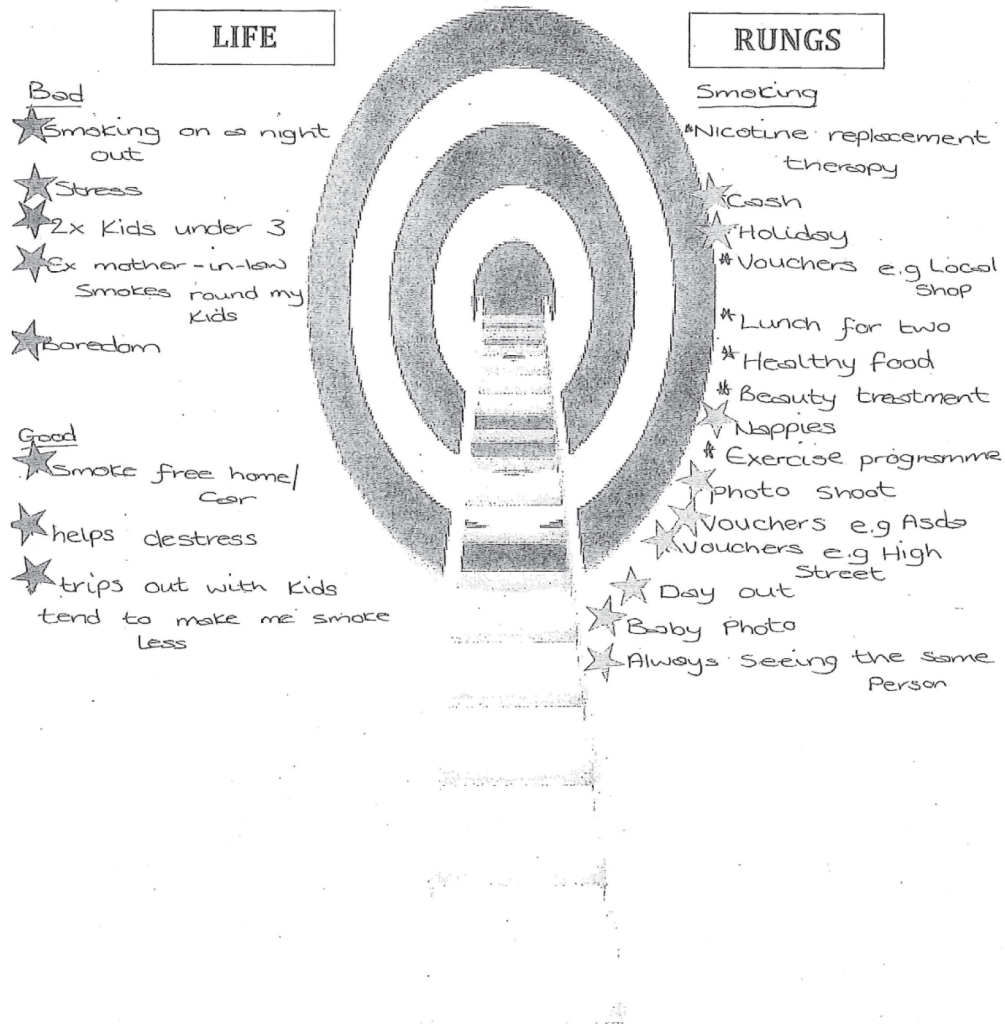 LIFE
Bad
Smoking on a night
out
Stress
2x Kids under 3
Ex mother-in-law
Smokes round my
Kids
Boredom
Good
Smoke free home/
Car
helps destress
trips out with Kids
tend to make me smoke
Less
RUNGS
Smoking
*Nicotine replacement
therapy
Cash
Holiday
*Vouchers e.g Local
Shop
*Lunch for two
*Healthy food
*Beauty treatment
Nappies
*Exercise programme
Photo shoot
Vouchers e.g Asda
Vouchers e.g High
Street
Day out
Baby Photo
Always seeing the same
Person